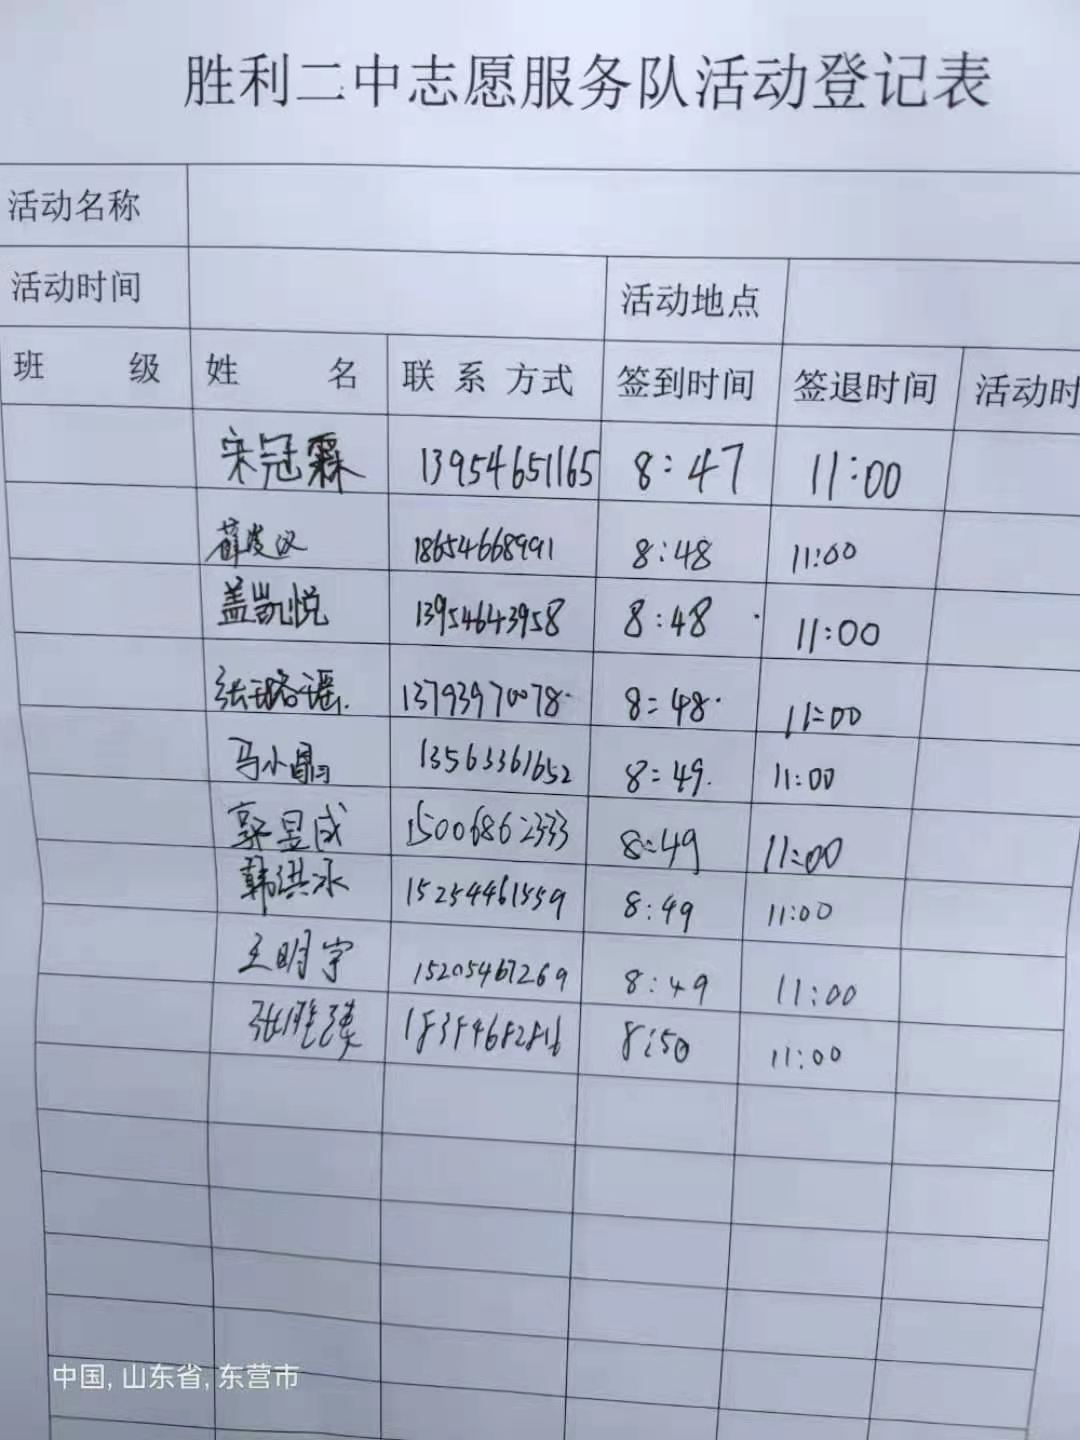 胜利二中志愿服务队活动登记表
活动名称
活动时间 活动地点
班 级 姓 名 联系方式 签到时间 签退时间 活动时
宋冠霖 13954651165 8:47 11:00
18654668991 8:48 11:00
盖凯悦 13954643958 8:48 11:00
张璐谣 13793970078 8:48 11:00
马小 13563361652 8:49 11:00
郭昱成 15006862333 8:49 11:00
韩洪冰 15254461559 8:49 11:00
王明宇 15205467269 8:49 11:00
张胜瑛 8:50 11:00
中国, 山东省, 东营市